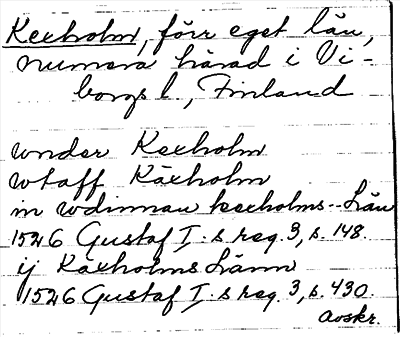 Kexholm, förr eget län,
numera härad i Vi-
borgs l., Finland
wnder Kexholm
wtaff Käxholm
in wdinnan kexholms--Län
1526 Gustaf I:s reg. 3, s. 148.
ij Käxholms Länn
1526 Gustaf I:s reg. 3, s. 430.
avskr.